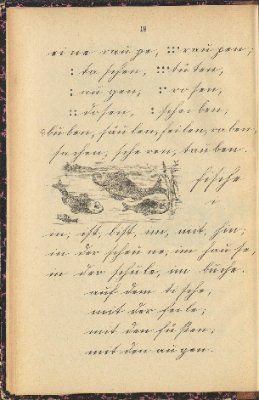 18
eine raupe, raupen;
taschen, tüten,
augen; rosen,
dosen, scheiben;
säulen, feilen, raben,
sachen, scheren, tauben.
fische
i
in, ist, bist, im, mit, hin;
in der scheune, im hause,
in der schule, im buche.
auf dem tische,
mit der feile;
mit den füßen;
mit den augen.